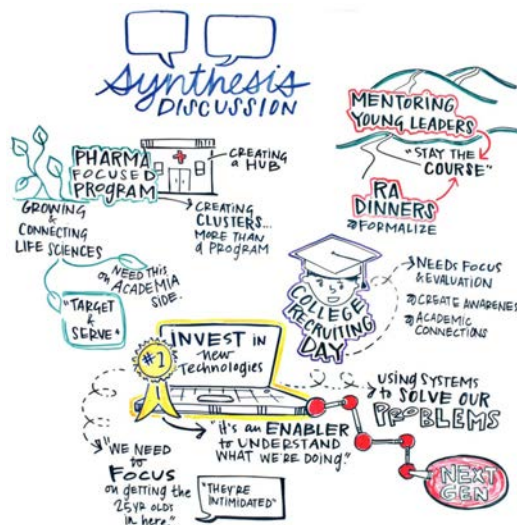 Synthesis
DISCUSSION
PHARMA
FOCUSED
PROGRAM
CREATING
a HUB
CREATING
CLUSTERS...
MORE THAN
a PROGRAM
GROWING
&
CONNECTING
LIFE SCIENCES
NEED THIS
on ACADEMIA
SIDE.
"TARGET
&
SERVE"
MENTORING
YOUNG LEADERS
"STAY THE
COURSE"
RA
DINNERS
FORMALIZE
COLLEGE
RECRUITING
DAY
NEEDS FOCUS
& EVALUATION
CREATE AWARENESS
ACADEMIC
CONNECTIONS
#1
INVEST in
new
Technologies
"it's an ENABLER
to UNDERSTAND
WHAT WE'RE DOING."
"WE NEED
to
FOCUS
on getting the
25 YR OLDS
in here."
"THEY'RE
INTIMIDATED"
USING SYSTEMS
to SOLVE OUR
PROBLEMS
NEXT
GEN